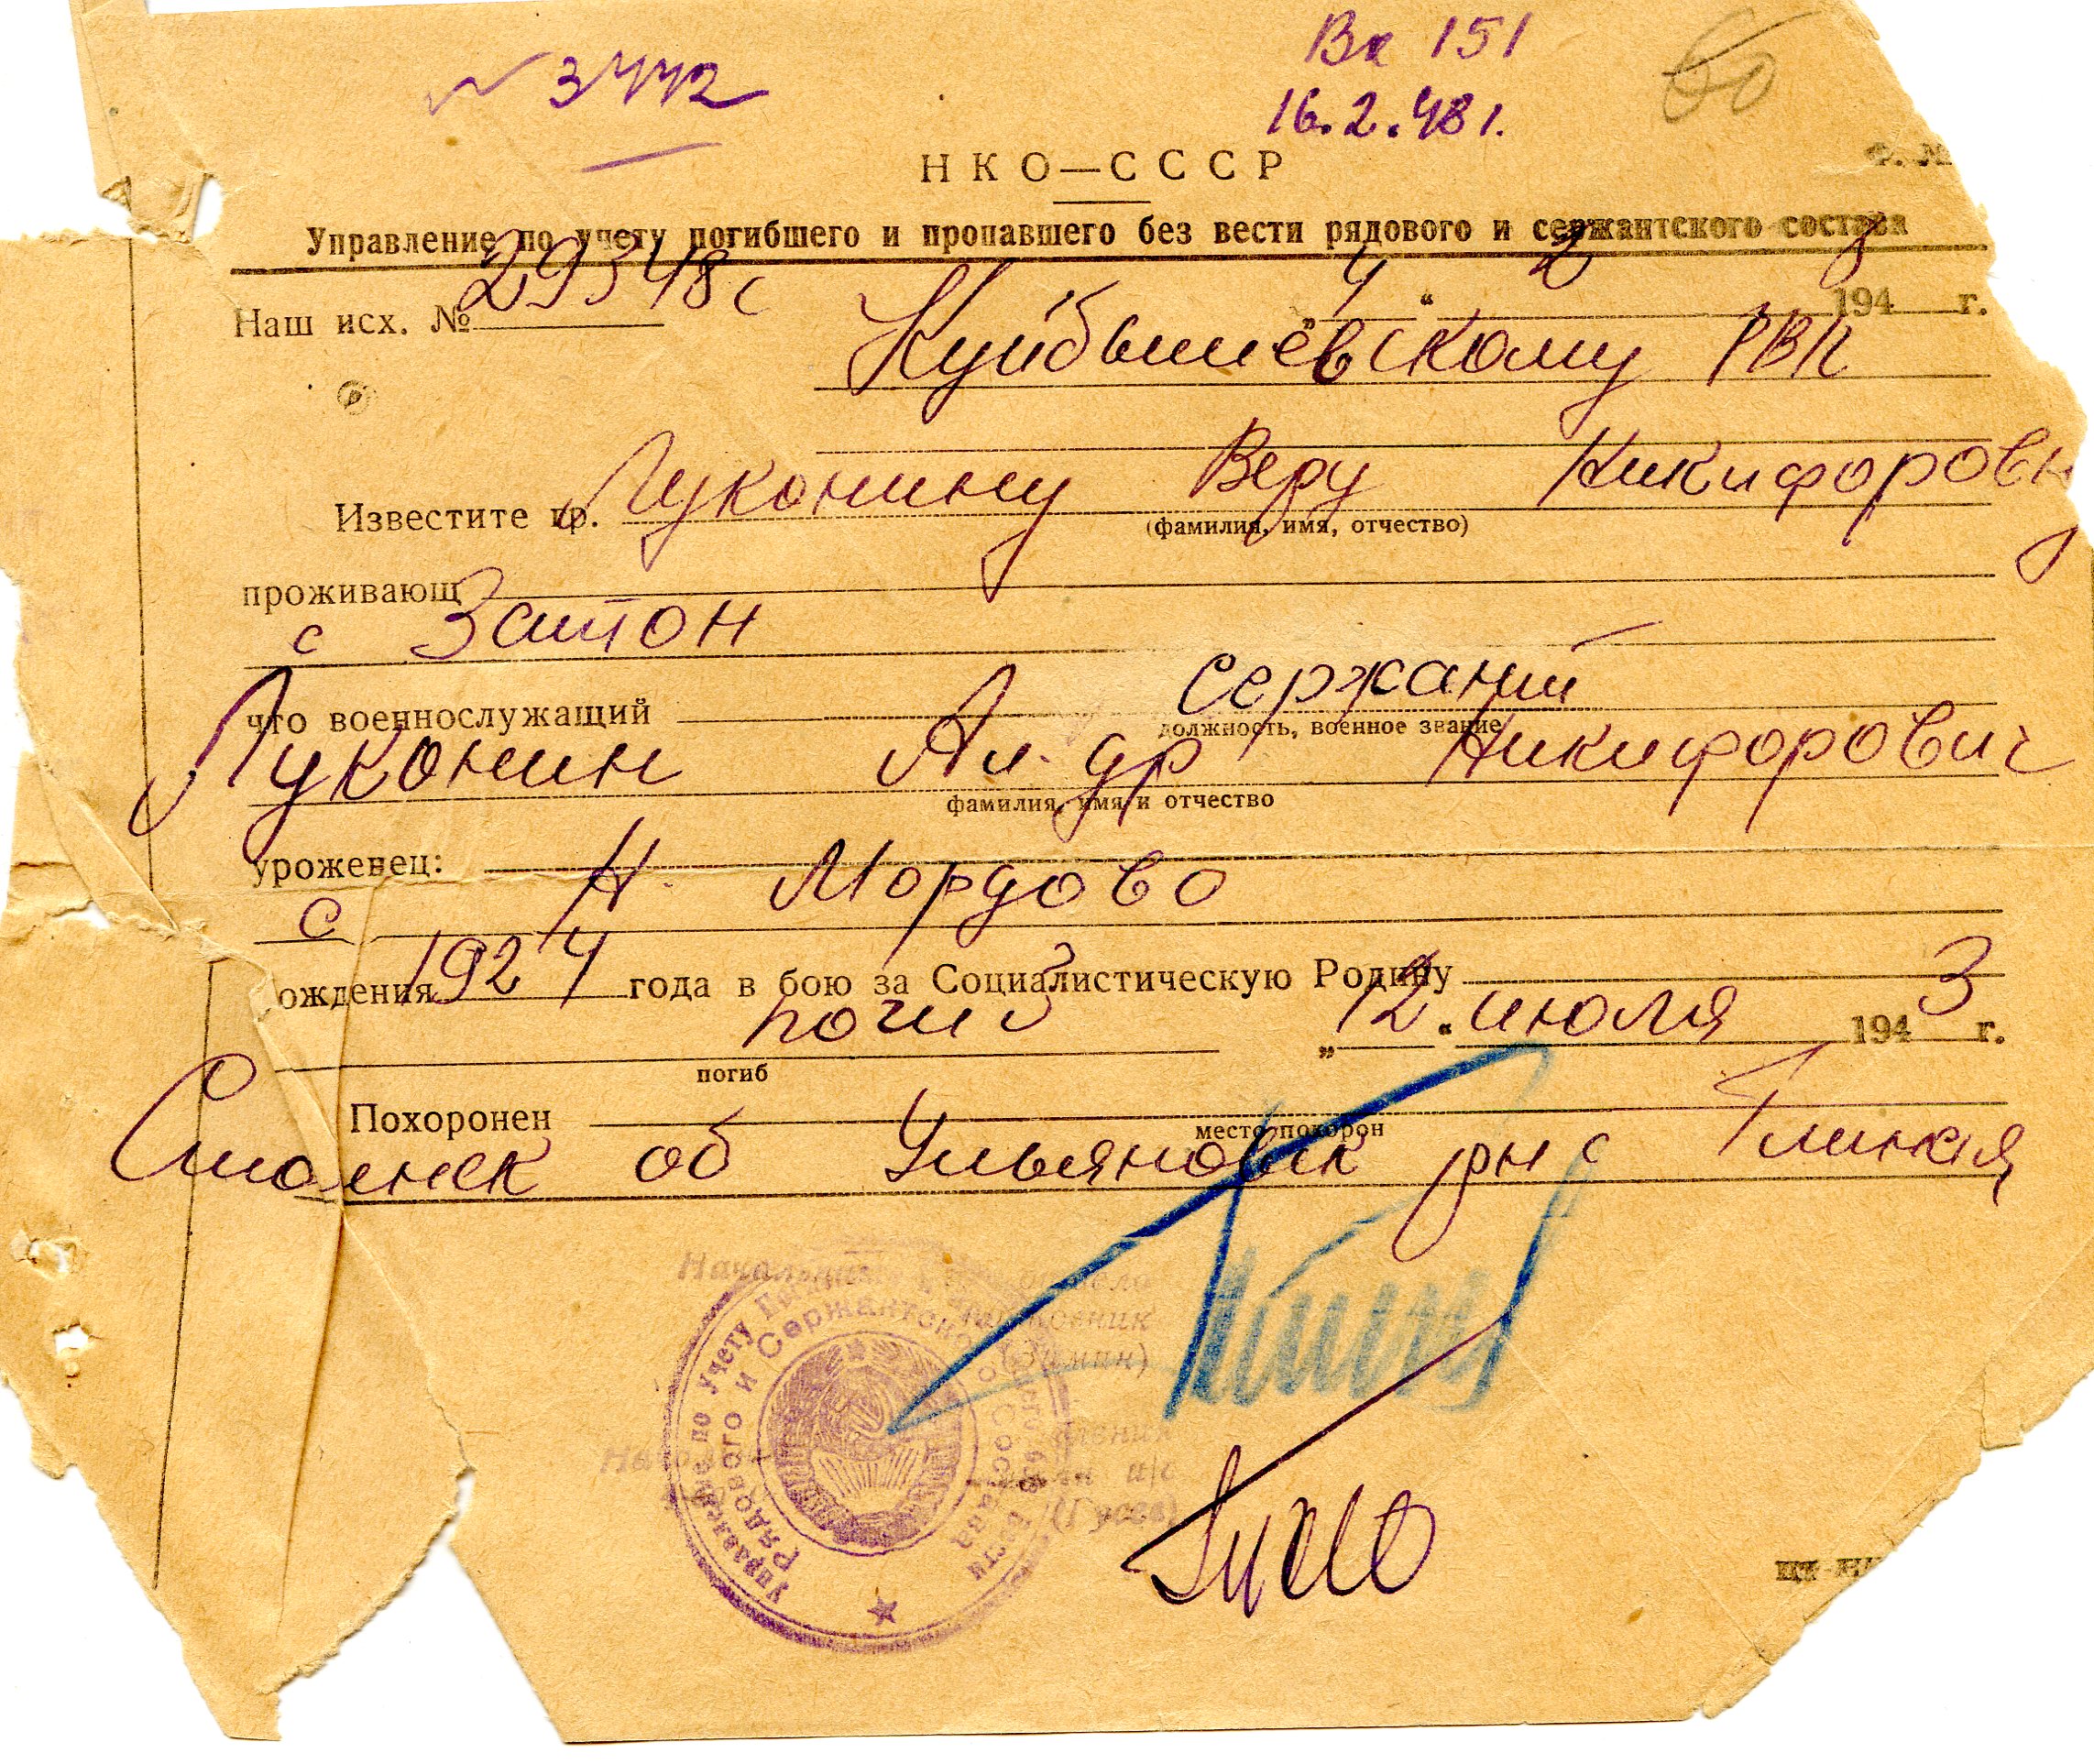 № 3442
Вх 151
16.2.48 г.
60
НКО—СССР
Ф. №
Управление по учету погибшего и пропавшего без вести рядового и сержантского состава
Наш исх. № 29348с „4“ 2 1948 г.
Куйбышевскому РВК
Известите гр. Луконину Веру Никифоровну
(фамилия, имя, отчество)
проживающ
с Затон
что военнослужащий сержант
должность, военное звание
Луконин Ал-др Никифорович
фамилия, имя и отчество
уроженец:
с Н. Мордово
рождения 1924 года в бою за Социалистическую Родину
погиб „12“ июля 1943 г.
погиб
Похоронен
место похорон
Смоленск об Ульяновск рн с
Управление по учету Погибшего и Пропавшего без вести
Рядового и Сержантского Состава
полковник
(Зимин)
(Гусев)